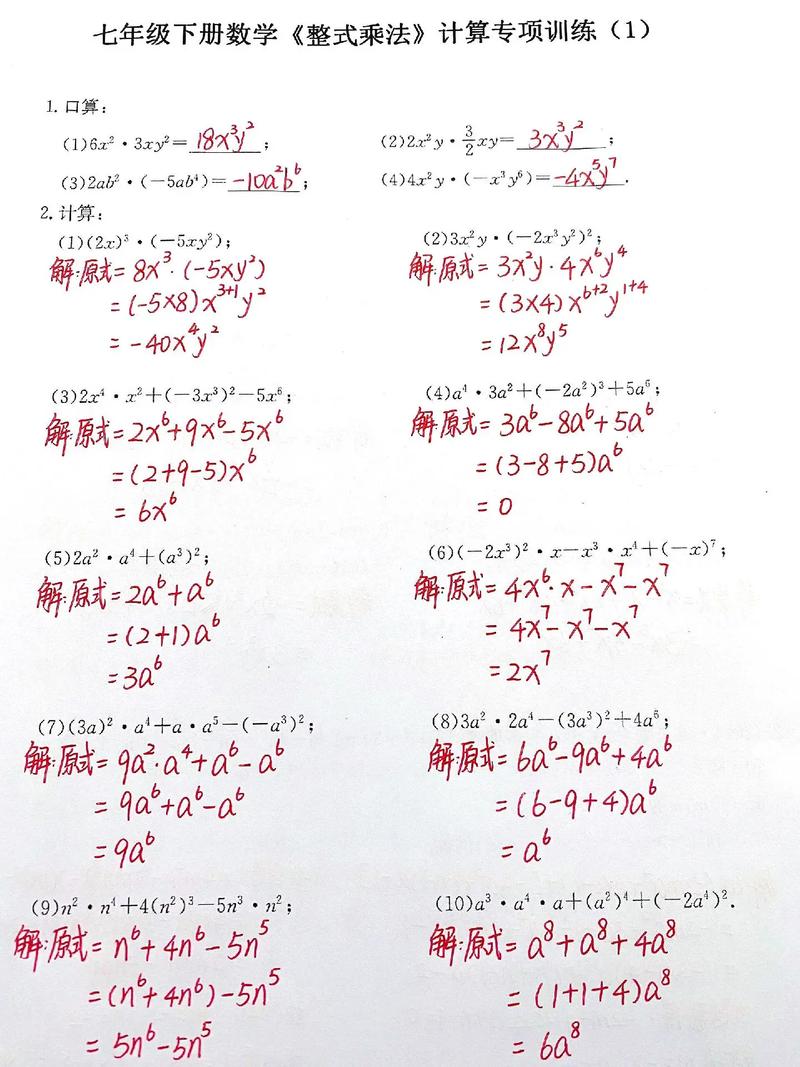 七年级下册数学《整式乘法》计算专项训练（1）
1. 口算：
(1)6x²·3xy²= 18x³y² ;
(2)2x²y·3/2xy= 3x³y² ;
(3)2ab²·(-5ab⁴)= -10a²b⁶ ;
(4)4x²y·(-x³y⁶)= -4x⁵y⁷ .
2. 计算：
(1)(2x)³·(-5xy²);
解:原式=8x³·(-5xy²)
=(-5×8)x³⁺¹y²
=-40x⁴y²
(2)3x²y·(-2x³y²)²;
解:原式=3x²y·4x⁶y⁴
=(3×4)x⁶⁺²y¹⁺⁴
=12x⁸y⁵
(3)2x⁴·x²+(-3x³)²-5x⁶;
解:原式=2x⁶+9x⁶-5x⁶
=(2+9-5)x⁶
=6x⁶
(4)a⁴·3a²+(-2a²)³+5a⁶;
解:原式=3a⁶-8a⁶+5a⁶
=(3-8+5)a⁶
=0
(5)2a²·a⁴+(a³)²;
解:原式=2a⁶+a⁶
=(2+1)a⁶
=3a⁶
(6)(-2x³)²·x-x³·x⁴+(-x)⁷;
解:原式=4x⁶·x-x⁷-x⁷
=4x⁷-x⁷-x⁷
=2x⁷
(7)(3a)²·a⁴+a·a⁵-(-a³)²;
解:原式=9a²·a⁴+a⁶-a⁶
=9a⁶+a⁶-a⁶
=9a⁶
(8)3a²·2a⁴-(3a³)²+4a⁶;
解:原式=6a⁶-9a⁶+4a⁶
=(6-9+4)a⁶
=a⁶
(9)n²·n⁴+4(n²)³-5n³·n²;
解:原式=n⁶+4n⁶-5n⁵
=(n⁶+4n⁶)-5n⁵
=5n⁶-5n⁵
(10)a³·a⁴·a+(a²)⁴+(-2a⁴)².
解:原式=a⁸+a⁸+4a⁸
=(1+1+4)a⁸
=6a⁸